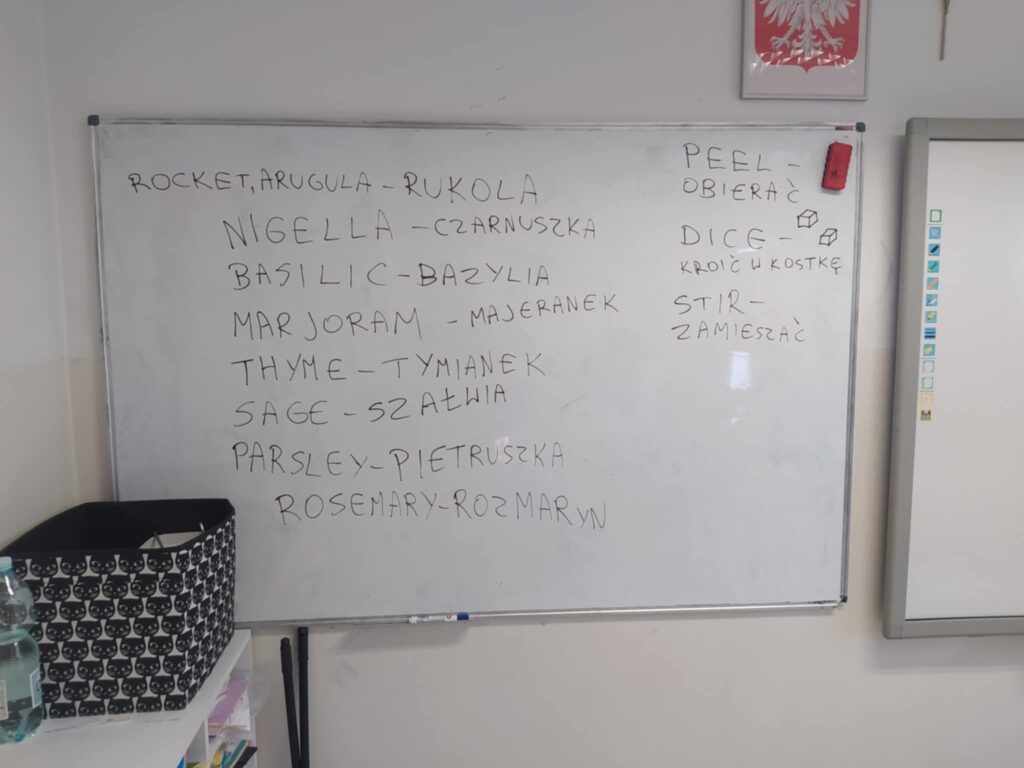 ROCKET, ARUGULA – RUKOLA
NIGELLA – CZARNUSZKA
BASILIC – BAZYLIA
MARJORAM – MAJERANEK
THYME – TYMIANEK
SAGE – SZAŁWIA
PARSLEY – PIETRUSZKA
ROSEMARY – ROZMARYN
PEEL –
OBIERAĆ
DICE –
KROIĆ W KOSTKĘ
STIR –
ZAMIESZAĆ